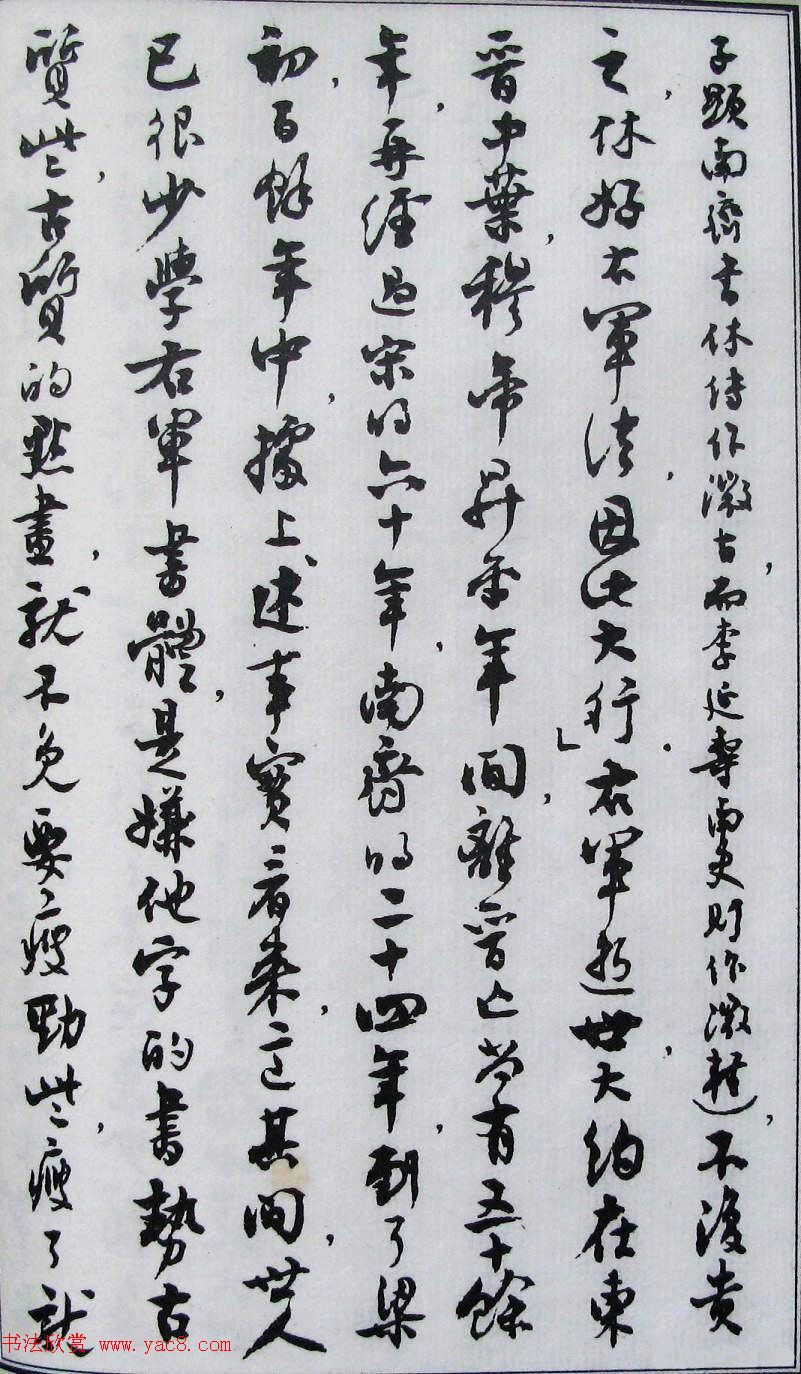 子顯南齊書休傳作微古，而李延壽南史則作微輕），不復貴
之，休好右軍法，因此大行。」右軍逝世，大約在東
晉中葉，穆帝昇平年間，離晉亡尚有五十餘
年，再經過宋的六十年，南齊的二十四年，到了梁
初，百餘年中，據上述事實看來，這其間，世人
已很少學右軍書體，是嫌他字的書勢古
質些，古質的點畫，就不免要瘦勁些，瘦了就
书法欣赏 www.yac8.com